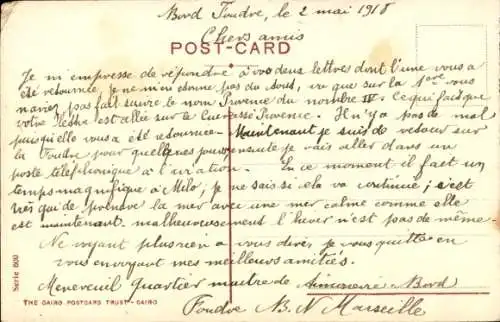 Bord Foudre, le 2 mai 1918
Chers amis
POST-CARD
Je m'empresse de répondre à vos deux lettres dont l'une vous a
été retournée, je ne m'en étonne pas du tous, vu que sur la 1ère vous
n'aviez pas fait suivre le nom Provence du nombre IV. Ce qui fait que
votre lettre est allée sur le Cuirassé Provence. Il n'y a pas de mal
puisqu'elle vous a été retournée. Maintenant je suis de retour sur
la Foudre pour quelques jours, ensuite je vais aller dans un
poste téléphonique à l'aviation. En ce moment il fait un
temps magnifique à Milo, je ne sais si cela va continué, c'est
très gai de prendre la mer avec une mer calme comme elle
est maintenant malheureusement l'hiver n'est pas de même.
Ne voyant plus rien a vous dire, je vous quitte en
vous envoyant mes meilleurs amitiés.
Quartier maitre de Bord
Foudre B. N Marseille
Serie 600
THE CAIRO POSTCARD TRUST-CAIRO